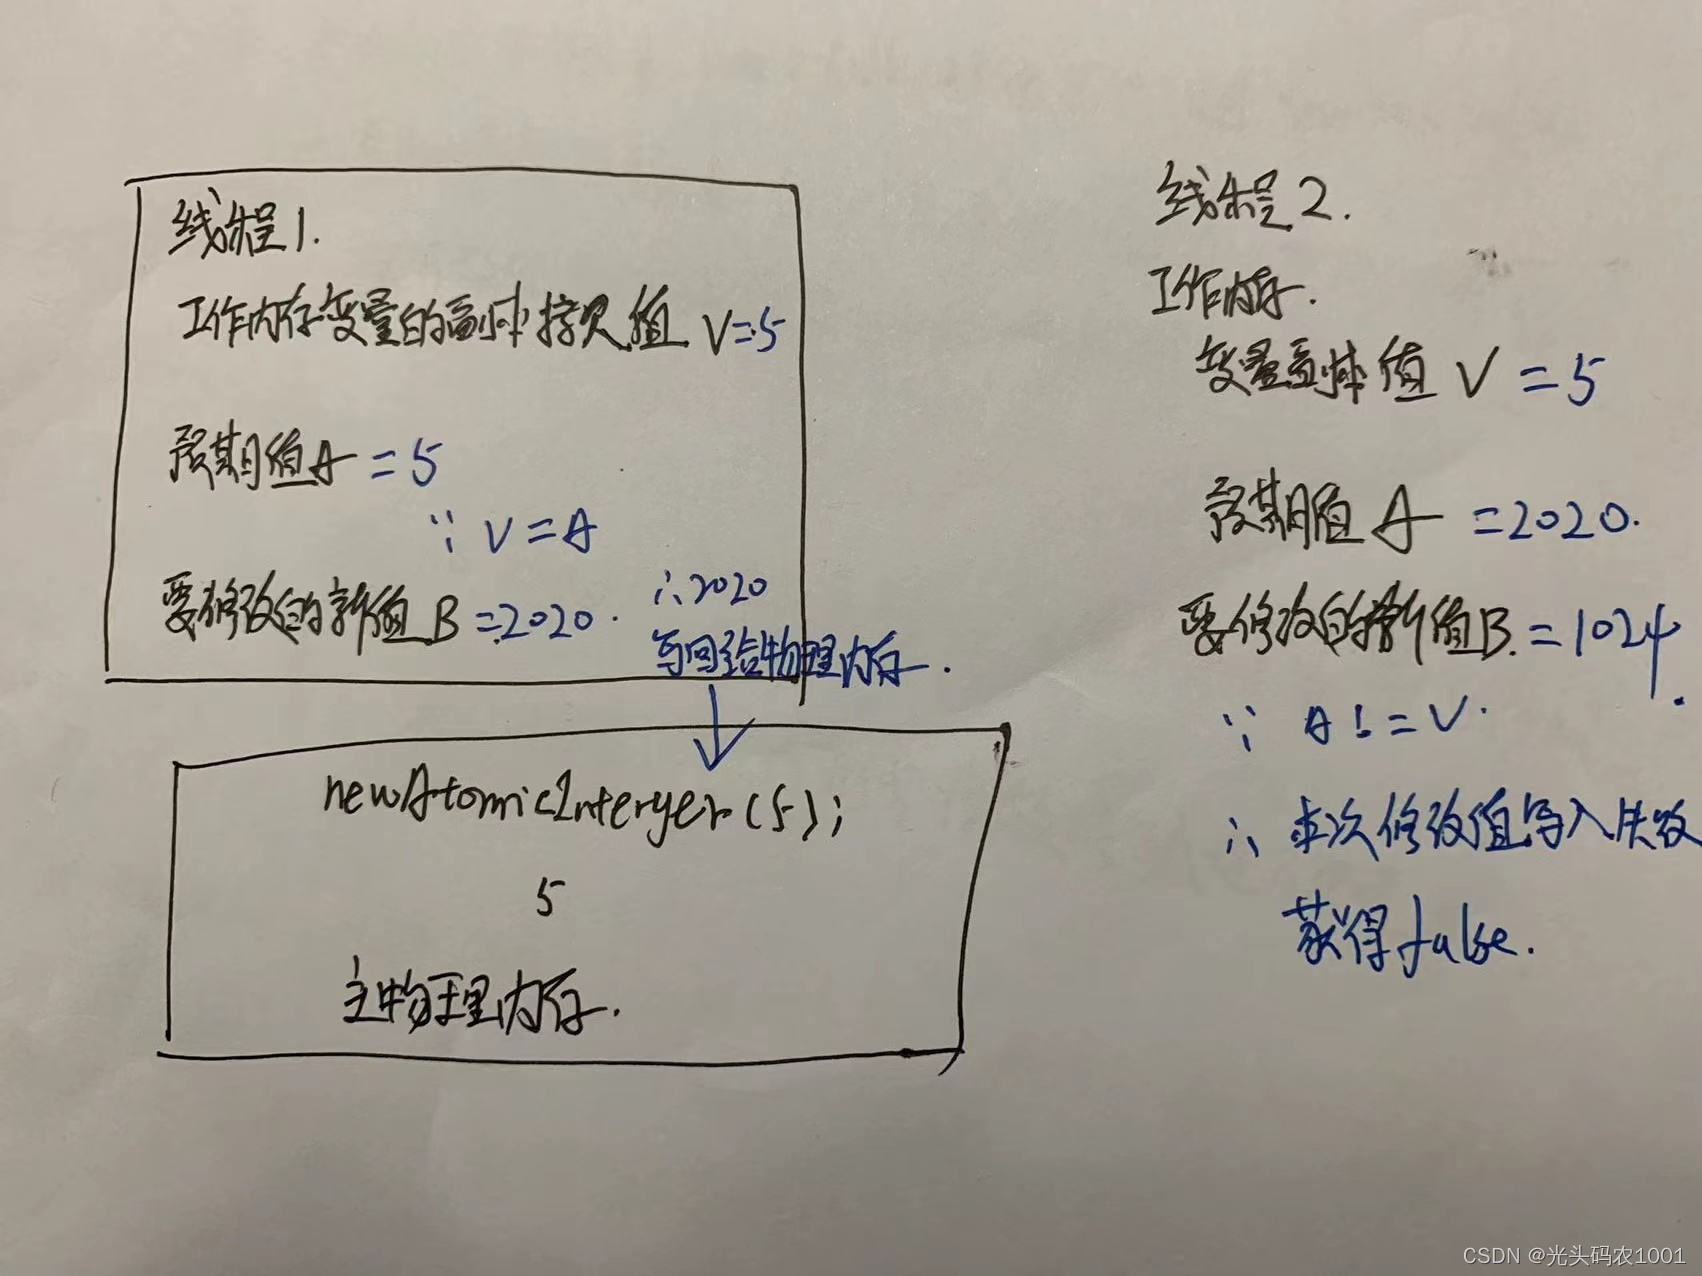 线程1.
工作内存变量的副本拷贝值 V=5
预期值A=5
∵ V=A
要修改的新值B=2020.
∴2020
写回给物理内存.
newAtomicInteryer(5);
5
主物理内存.
线程2.
工作内存.
变量副本值 V=5
预期值A=2020.
要修改的新值B.=1024.
∵ A!=V.
∴ 本次修改值写入失败
获得false.
CSDN @光头码农1001